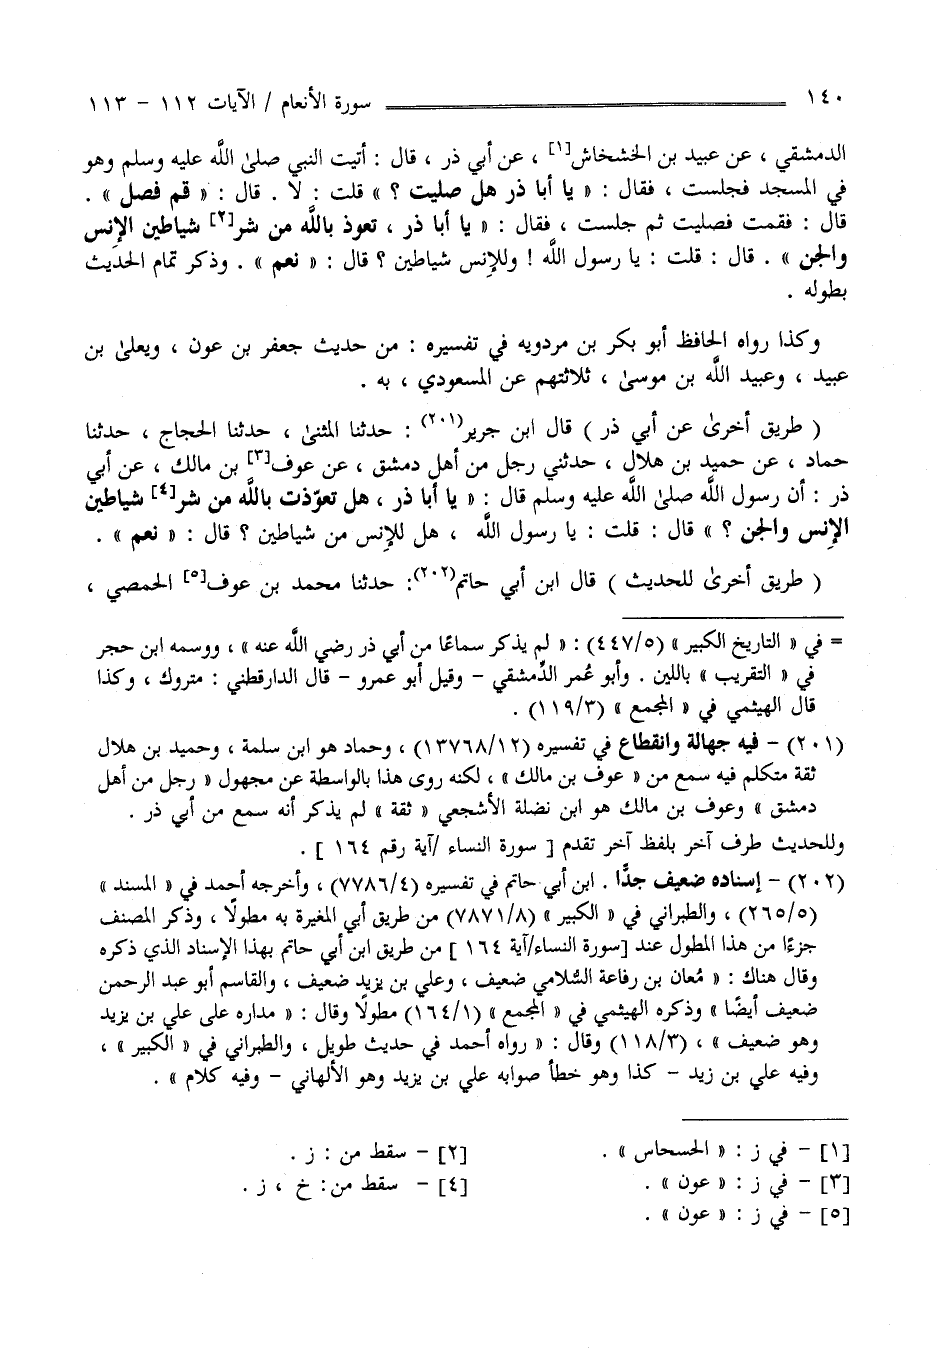 ١٤٠ سورة الأنعام / الآيات ١١٢ - ١١٣
الدمشقي ، عن عبيد بن الخشخاش[١] ، عن أبي ذر ، قال : أتيت النبي صلىٰ اللَّه عليه وسلم وهو
في المسجد فجلست ، فقال : « يا أبا ذر هل صليت ؟ » قلت : لا . قال : « قم فصل » .
قال : فقمت فصليت ثم جلست ، فقال : « يا أبا ذر ، تعوذ باللَّه من شر[٢] شياطين الإنس
والجن » . قال : قلت : يا رسول اللَّه ! وللإنس شياطين ؟ قال : « نعم » . وذكر تمام الحديث
بطوله .
وكذا رواه الحافظ أبو بكر بن مردويه في تفسيره : من حديث جعفر بن عون ، ويعلىٰ بن
عبيد ، وعبيد اللَّه بن موسىٰ ، ثلاثتهم عن المسعودي ، به .
( طريق أخرىٰ عن أبي ذر ) قال ابن جرير(٢٠١) : حدثنا المثنىٰ ، حدثنا الحجاج ، حدثنا
حماد ، عن حميد بن هلال ، حدثني رجل من أهل دمشق ، عن عوف[٣] بن مالك ، عن أبي
ذر : أن رسول اللَّه صلىٰ اللَّه عليه وسلم قال : « يا أبا ذر ، هل تعوّذت باللَّه من شر[٤] شياطين
الإنس والجن ؟ » قال : قلت : يا رسول اللَّه ، هل للإنس من شياطين ؟ قال : « نعم » .
( طريق أخرىٰ للحديث ) قال ابن أبي حاتم(٢٠٢): حدثنا محمد بن عوف[٥] الحمصي ،
= في « التاريخ الكبير » (٤٤٧/٥) : « لم يذكر سماعًا من أبي ذر رضي اللَّه عنه » ، ووسمه ابن حجر
في « التقريب » باللين . وأبو عُمر الدِّمشقي – وقيل أبو عمرو – قال الدارقطني : متروك ، وكذا
قال الهيثمي في « المجمع » (١١٩/٣) .
(٢٠١) – فيه جهالة وانقطاع في تفسيره (١٣٧٦٨/١٢) ، وحماد هو ابن سلمة ، وحميد بن هلال
ثقة متكلم فيه سمع من « عوف بن مالك » ، لكنه روى هذا بالواسطة عن مجهول « رجل من أهل
دمشق » وعوف بن مالك هو ابن نضلة الأشجعي « ثقة » لم يذكر أنه سمع من أبي ذر .
وللحديث طرف آخر بلفظ آخر تقدم [ سورة النساء /آية رقم ١٦٤ ] .
(٢٠٢) – إسناده ضعيف جدًّا . ابن أبي حاتم في تفسيره (٧٧٨٦/٤) ، وأخرجه أحمد في « المسند »
(٢٦٥/٥) ، والطبراني في « الكبير » (٧٨٧١/٨) من طريق أبي المغيرة به مطولًا ، وذكر المصنف
جزءًا من هذا المطول عند [سورة النساء/آية ١٦٤ ] من طريق ابن أبي حاتم بهذا الإسناد الذي ذكره
وقال هناك : « مُعان بن رفاعة السُّلامي ضعيف ، وعلي بن يزيد ضعيف ، والقاسم أبو عبد الرحمن
ضعيف أيضًا » وذكره الهيثمي في « المجمع » (١٦٤/١) مطولًا وقال : « مداره على علي بن يزيد
وهو ضعيف » ، (١١٨/٣) وقال : « رواه أحمد في حديث طويل ، والطبراني في « الكبير » ،
وفيه علي بن زيد – كذا وهو خطأ صوابه علي بن يزيد وهو الألهاني – وفيه كلام » .
[١] – في ز : « الحسحاس » . [٢] – سقط من : ز .
[٣] – في ز : « عون » . [٤] – سقط من: خ ، ز .
[٥] – في ز : « عون » .